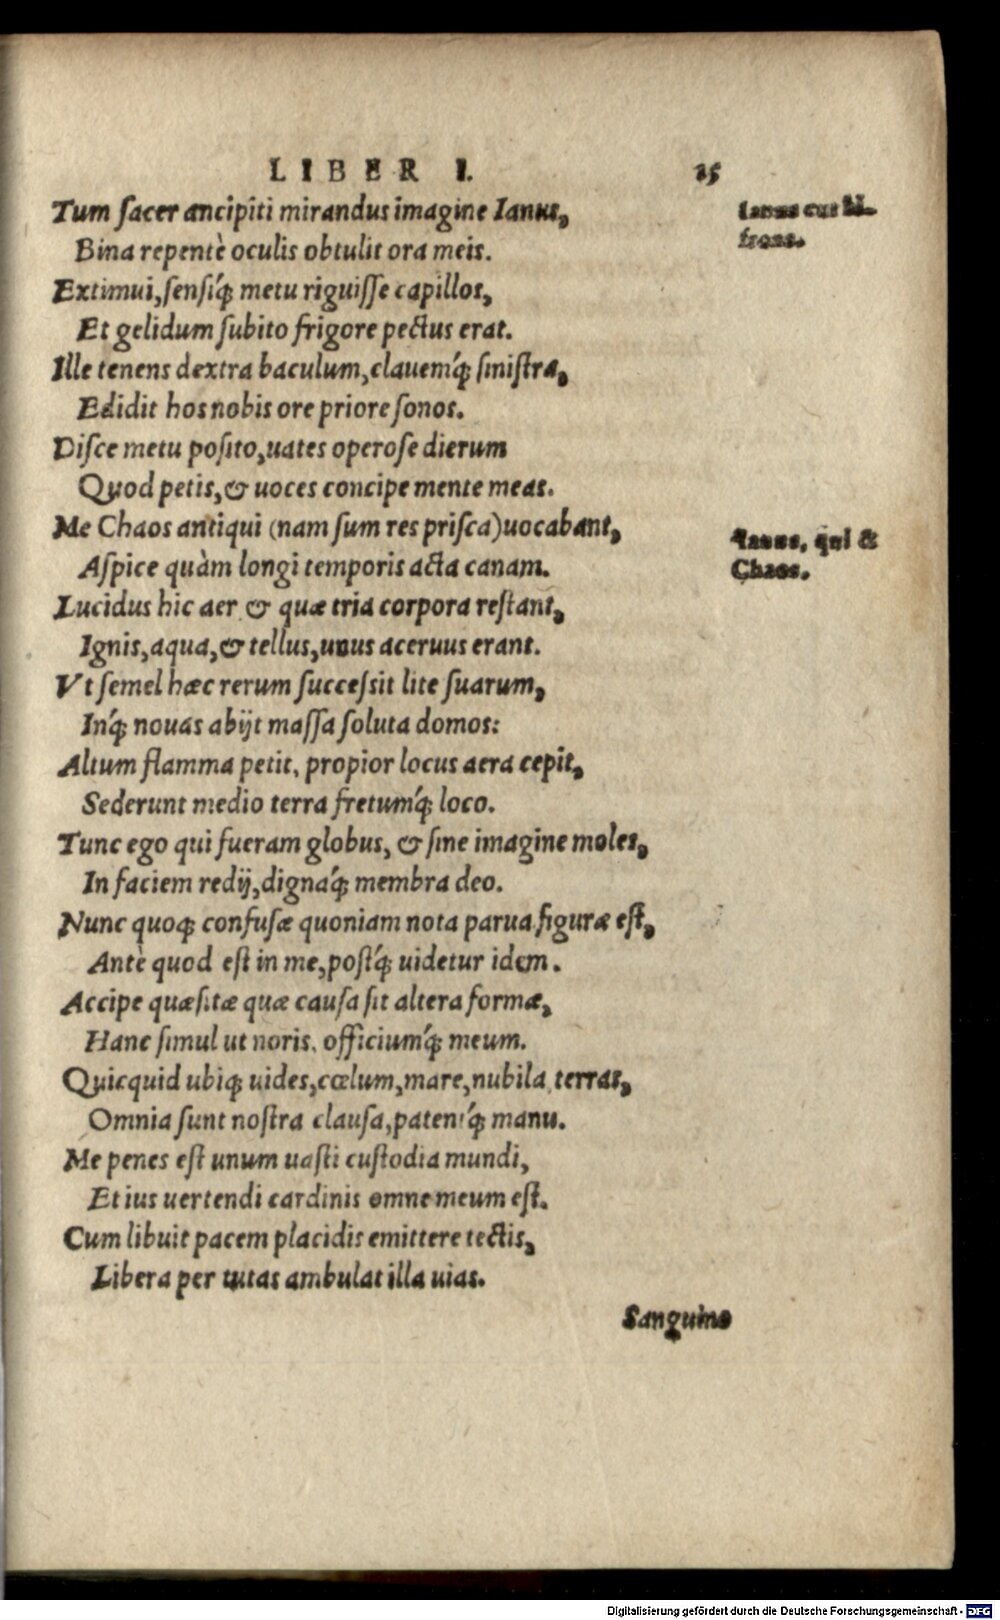 LIBER I. 25
Tum ſacer ancipiti mirandus imagine Ianus,
Ianus cur bi-
frons.
Bina repentè oculis obtulit ora meis.
Extimui, ſenſiq́; metu riguiſſe capillos,
Et gelidum ſubito frigore pectus erat.
Ille tenens dextra baculum, clauemq́; ſiniſtra,
Edidit hos nobis ore priore ſonos.
Diſce metu poſito, uates operoſe dierum
Quod petis, & uoces concipe mente meas.
Me Chaos antiqui (nam ſum res priſca) uocabant,
Ianus, qui &
Chaos.
Aſpice quàm longi temporis acta canam.
Lucidus hic aer & quæ tria corpora reſtant,
Ignis, aqua, & tellus, unus aceruus erant.
Vt ſemel hæc rerum ſucceſsit lite ſuarum,
Inq́; nouas abijt maſſa ſoluta domos:
Altum flamma petit, propior locus aera cepit,
Sederunt medio terra fretumq́; loco.
Tunc ego qui fueram globus, & ſine imagine moles,
In faciem redij, dignaq́; membra deo.
Nunc quoq; confuſæ quoniam nota parua figuræ eſt,
Antè quod eſt in me, poſtq́; uidetur idem.
Accipe quæſitæ quæ cauſa ſit altera formæ,
Hanc ſimul ut noris, officiumq́; meum.
Quicquid ubiq; uides, cœlum, mare, nubila, terras,
Omnia ſunt noſtra clauſa, patentq́; manu.
Me penes eſt unum uaſti cuſtodia mundi,
Et ius uertendi cardinis omne meum eſt.
Cum libuit pacem placidis emittere tectis,
Libera per tutas ambulat illa uias.
Sanguine
Digitalisierung gefördert durch die Deutsche Forschungsgemeinschaft - DFG